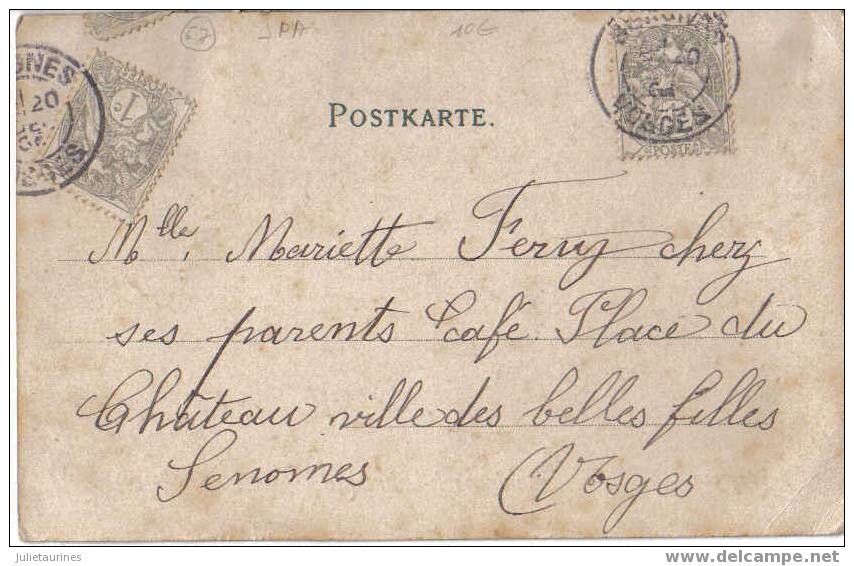 67 JPA 10€
GNES
20
1c
VOSGES
20
POSTES
POSTKARTE.
Mlle, Mariette Ferry chez
ses parents Café Place du
Château ville des belles filles
Senomes (Vosges
Julietaurines
www.delcampe.net